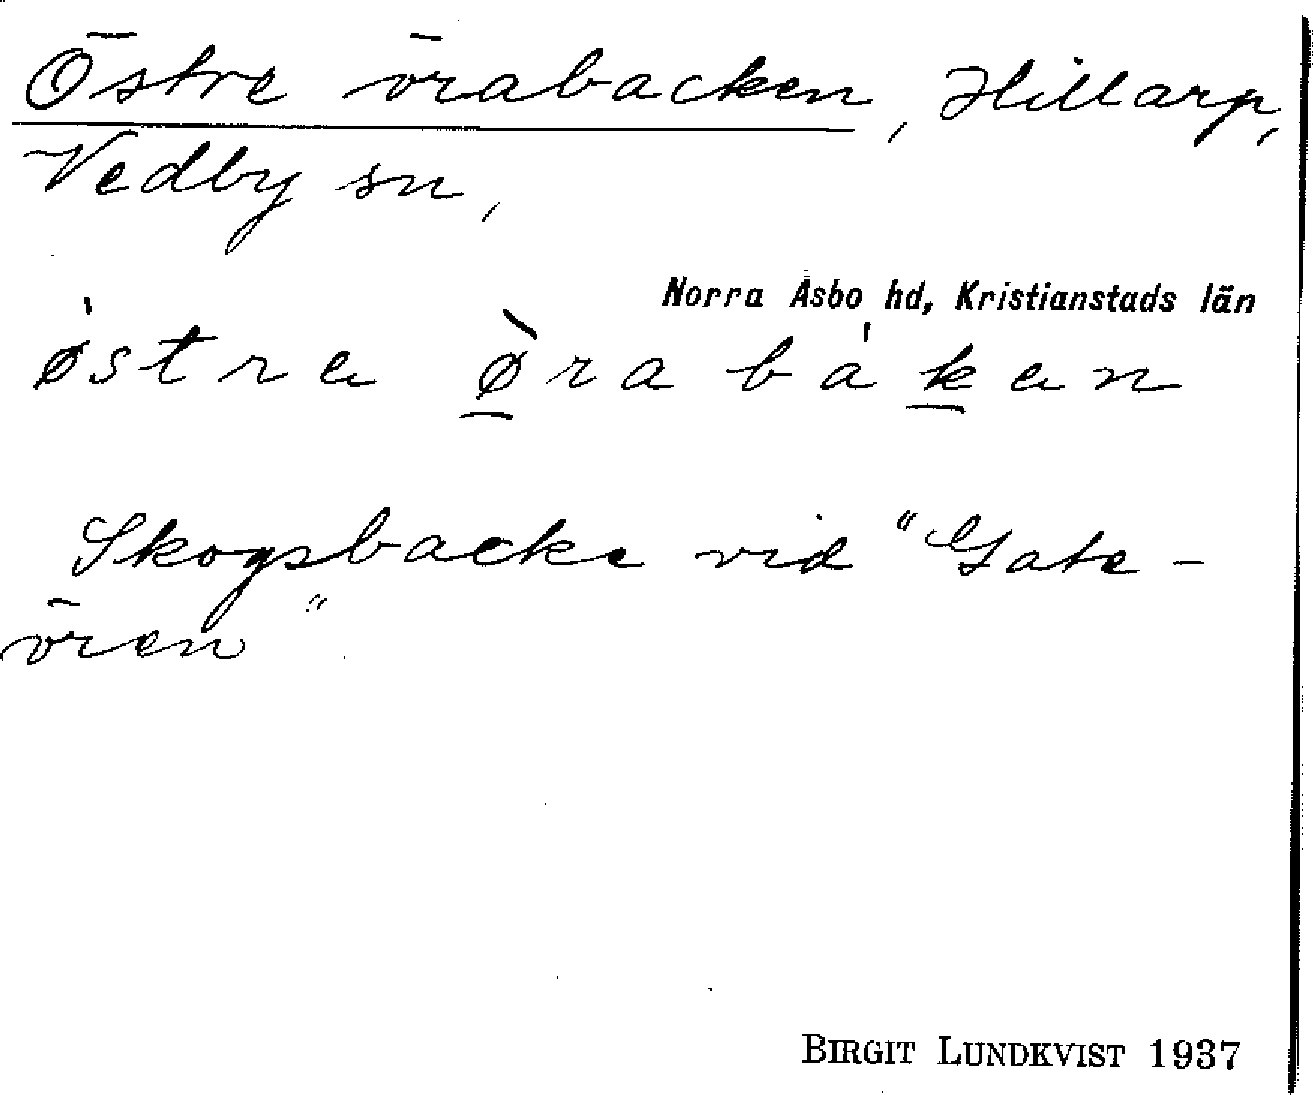 Östre örabacken, Hillarp,
Vedby sn,
Norra Åsbo hd, Kristianstads län
ø̍stra ø̱̀raba̍ḵan
Skogsbacke vid "Gate-
ören"
BIRGIT LUNDKVIST 1937